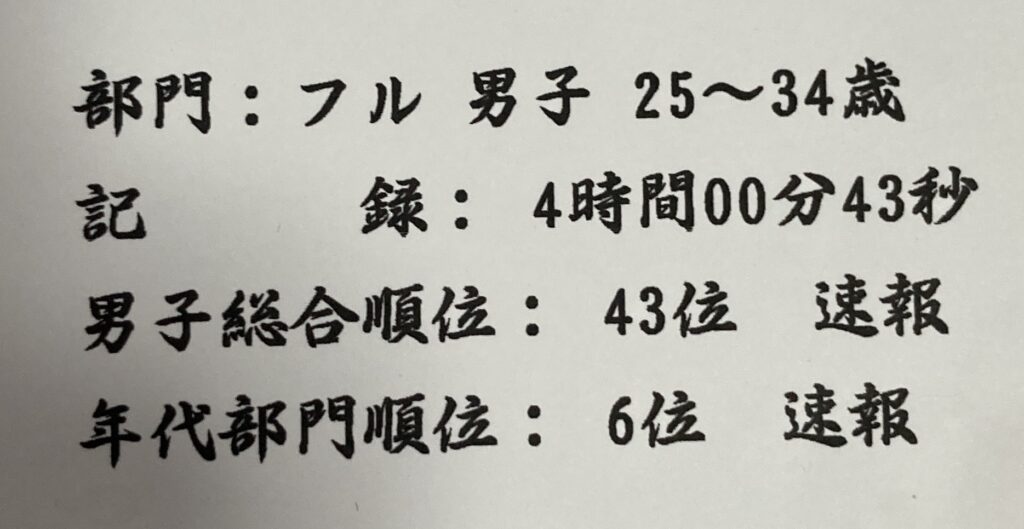 部門：フル 男子 25～34歳
記　　　録： 4時間00分43秒
男子総合順位： 43位　速報
年代部門順位： 6位　速報